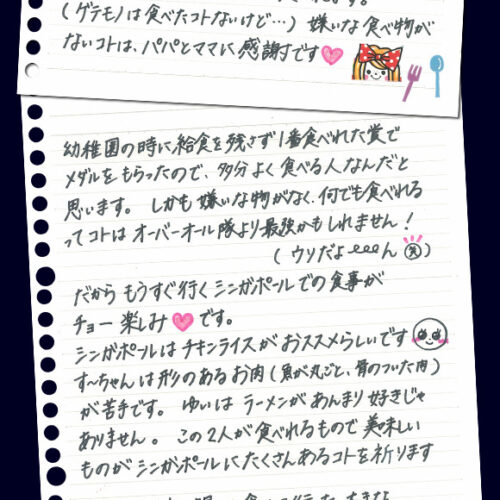 (ゲテモノは食べたコトないけど…) 嫌いな食べ物が
ないコトは、パパとママに感謝です
幼稚園の時に給食を残さず1番食べれた賞で
メダルをもらったので、多分よく食べる人なんだと
思います。しかも嫌いな物がなく、何でも食べれる
ってコトはオーバーオール隊より最強かもしれません!
(ウソだよeeeん 笑)
だからもうすぐ行くシンガポールでの食事が
チョー楽しみ♥です。
シンガポールはチキンライスがおススメらしいです
す〜ちゃんは形のあるお肉(魚が丸ごと、骨のついた肉)
が苦手です。ゆいはラーメンがあんまり好きじゃ
ありません。この2人が食べれるもので美味しい
ものがシンガポールにたくさんあるコトを祈ります